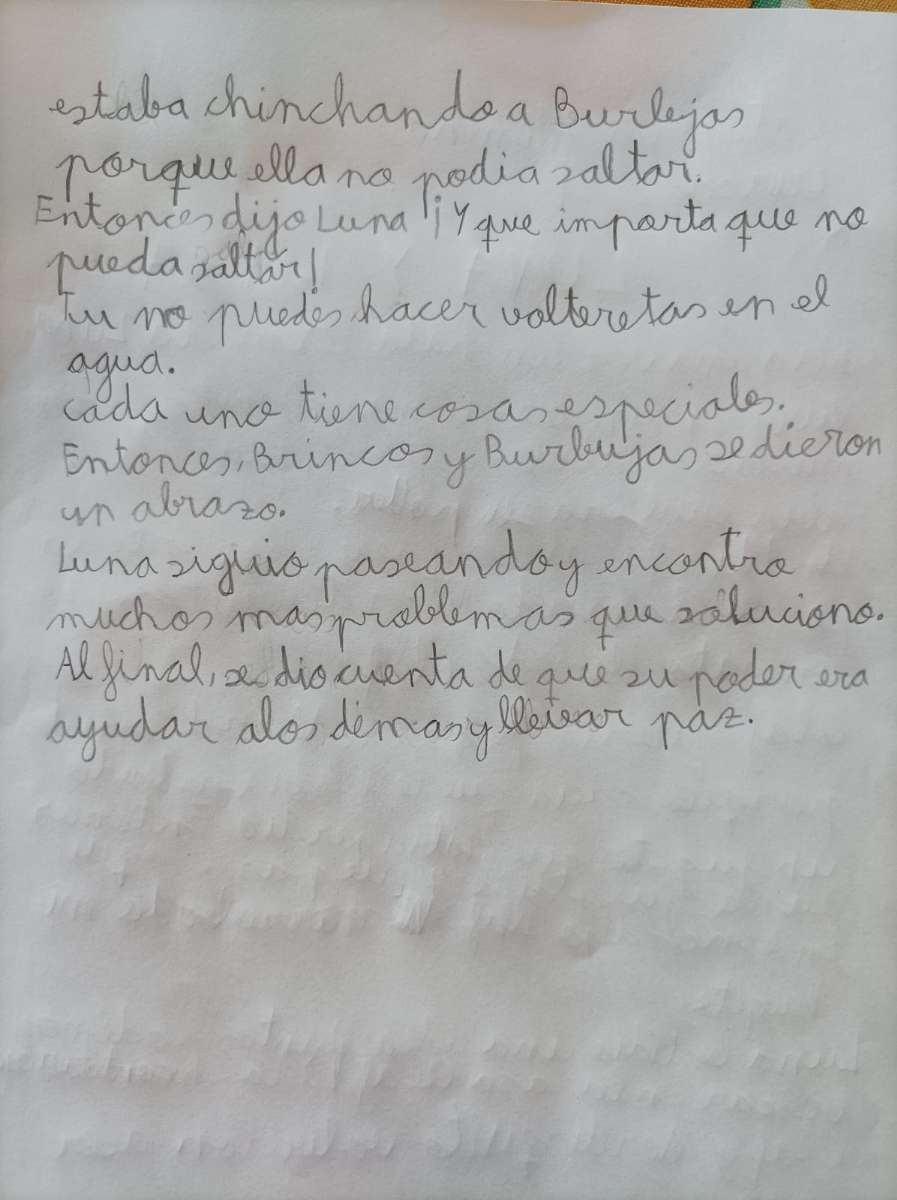 estaba chinchando a Burlejas
porque ella no podia saltar.
Entonces dijo Luna ¡Y que importa que no
pueda saltar!
Tu no puedes hacer volteretas en el
agua.
cada uno tiene cosas especiales.
Entonces, Brincos y Burbujas se dieron
un abrazo.
Luna siguio paseando y encontro
muchos mas problemas que soluciono.
Al final, se dio cuenta de que su poder era
ayudar a los demas y llevar paz.